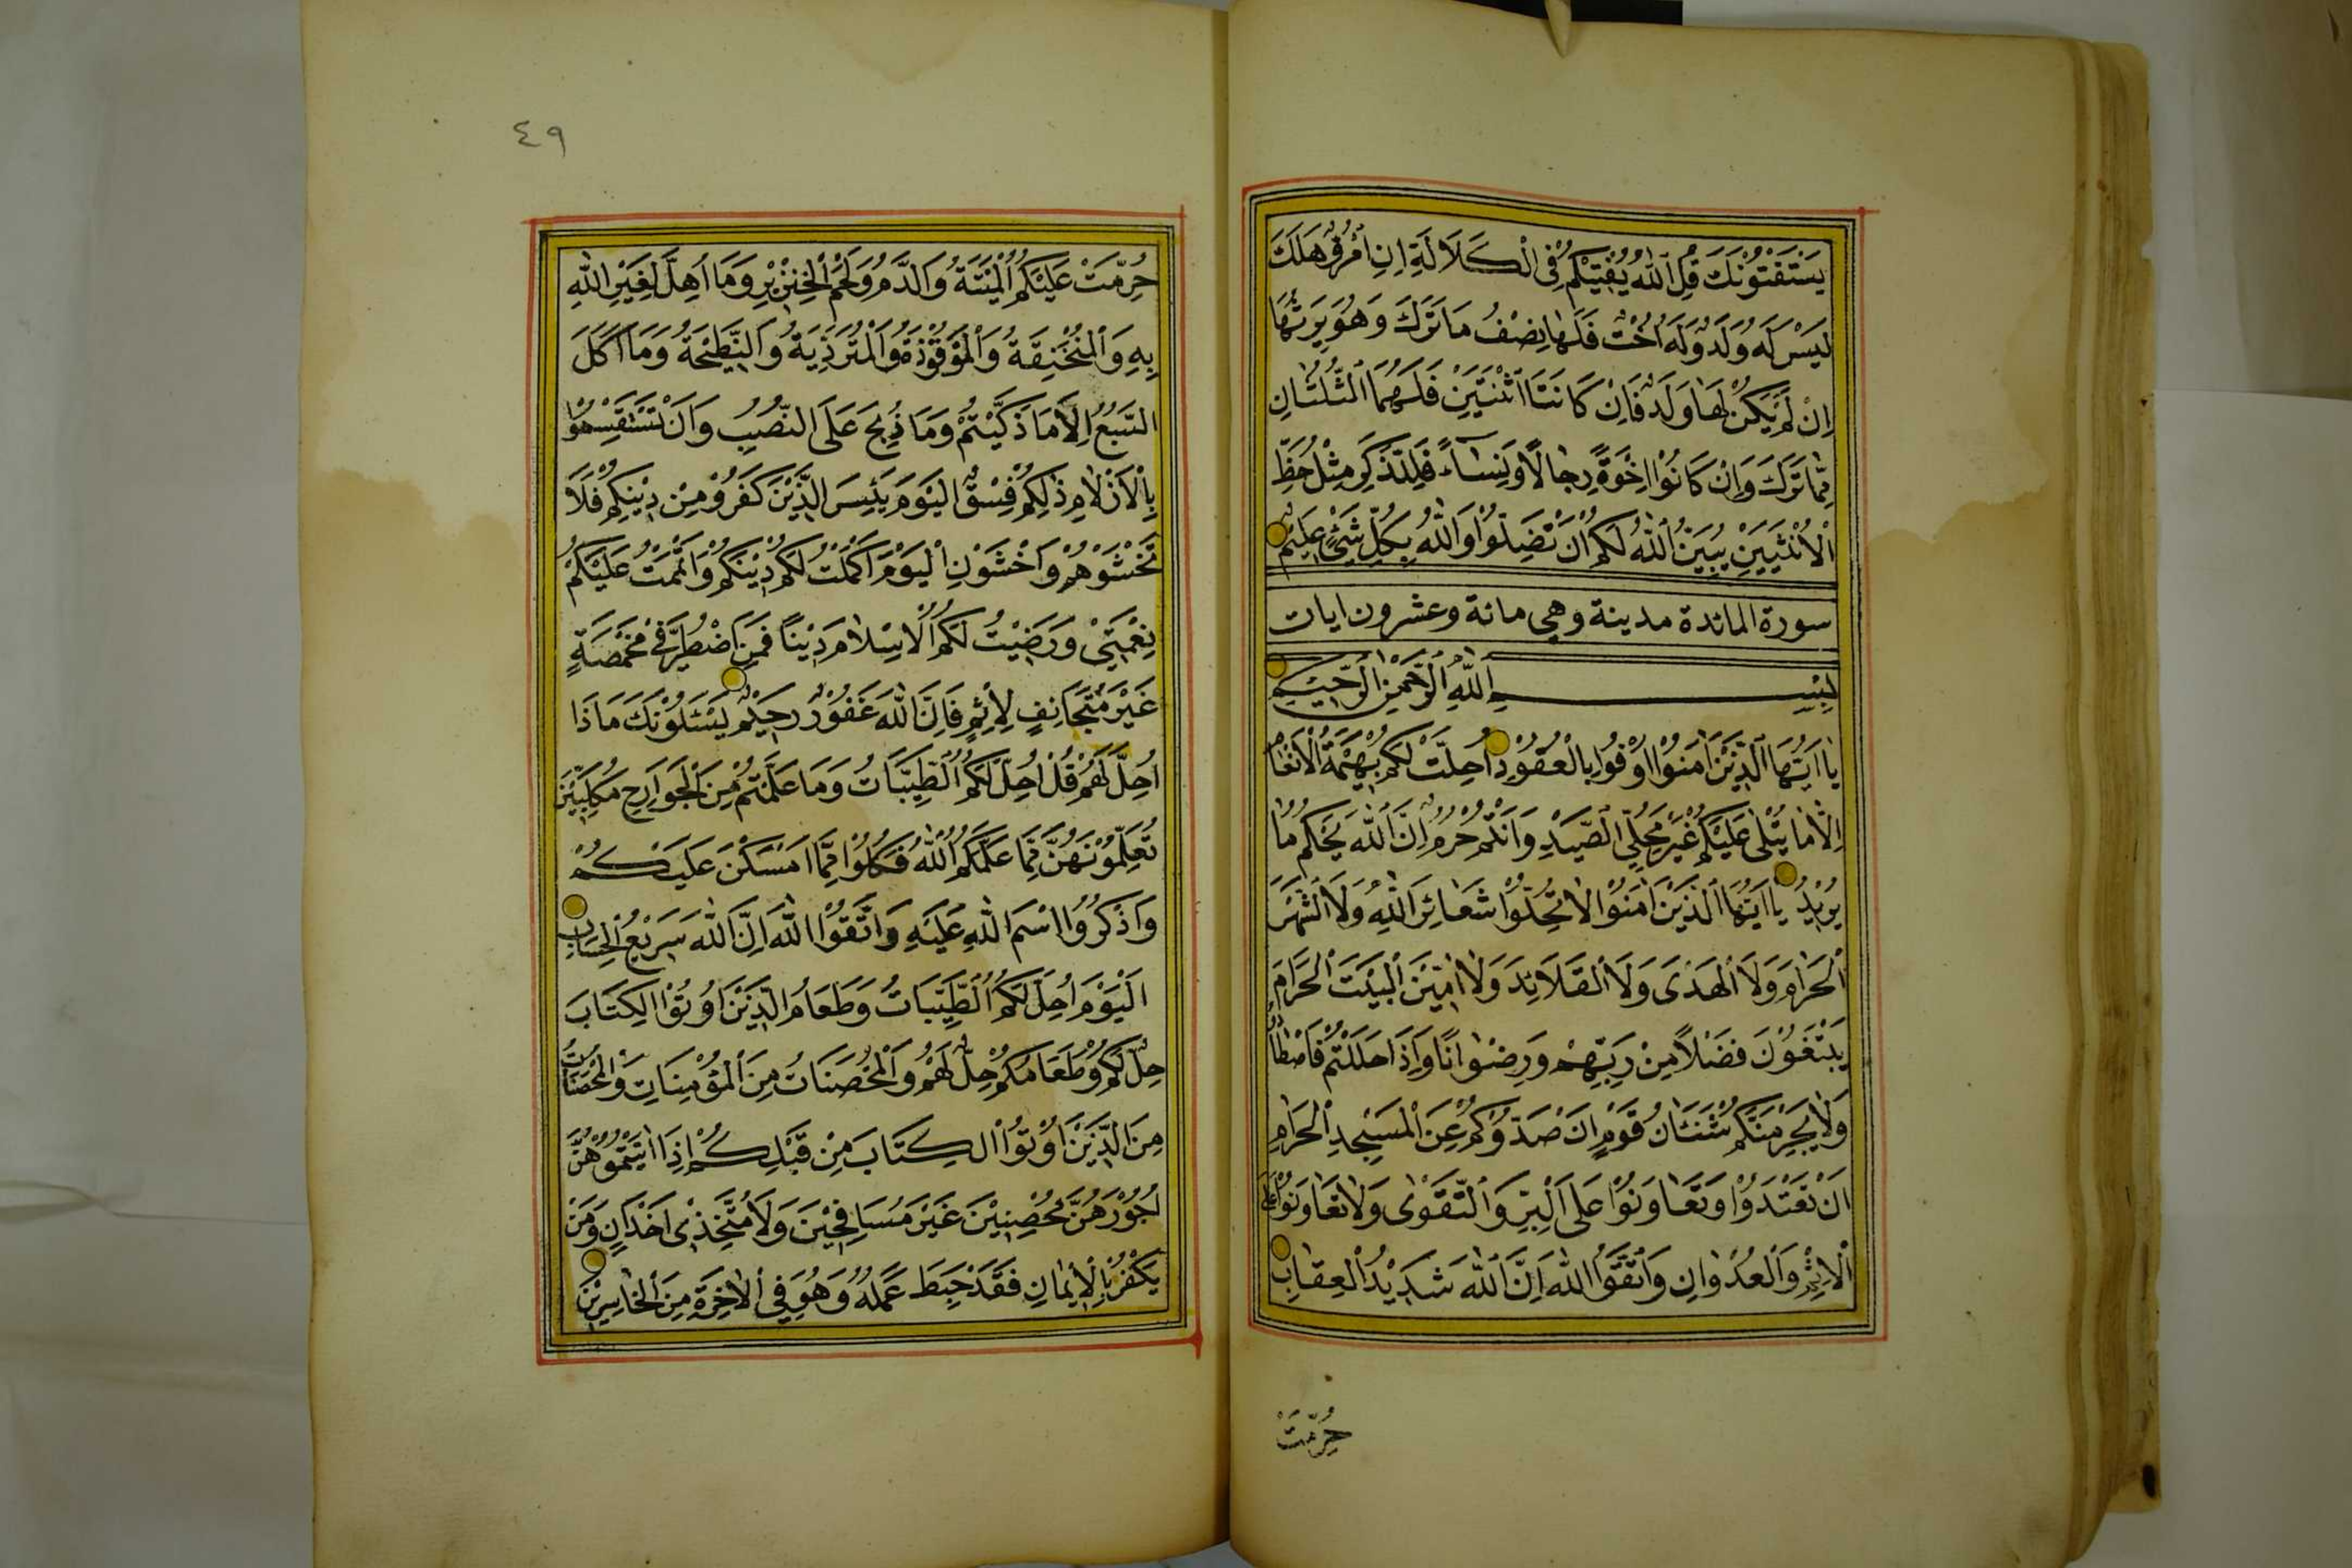 يَسْتَفْتُونَكَ قُلِ اللّٰهُ يُفْتِيكُمْ فِى الْكَلَالَةِ اِنِ امْرُؤٌ هَلَكَ
لَيْسَ لَهُ وَلَدٌ وَلَهُ اُخْتٌ فَلَهَا نِصْفُ مَا تَرَكَ وَهُوَ يَرِثُهَا
اِنْ لَمْ يَكُنْ لَهَا وَلَدٌ فَاِنْ كَانَتَا اثْنَتَيْنِ فَلَهُمَا الثُّلُثَانِ
مِمَّا تَرَكَ وَاِنْ كَانُوا اِخْوَةً رِجَالًا وَنِسَاءً فَلِلذَّكَرِ مِثْلُ حَظِّ
الْاُنْثَيَيْنِ يُبَيِّنُ اللّٰهُ لَكُمْ اَنْ تَضِلُّوا وَاللّٰهُ بِكُلِّ شَىْءٍ عَلِيمٌ
سورة المائدة مدينة وهي مائة وعشرون ايات
بِسْمِ اللّٰهِ الرَّحْمٰنِ الرَّحِيمِ
يَا اَيُّهَا الَّذِينَ اٰمَنُوا اَوْفُوا بِالْعُقُودِ اُحِلَّتْ لَكُمْ بَهِيمَةُ الْاَنْعَامِ
اِلَّا مَا يُتْلٰى عَلَيْكُمْ غَيْرَ مُحِلِّى الصَّيْدِ وَاَنْتُمْ حُرُمٌ اِنَّ اللّٰهَ يَحْكُمُ مَا
يُرِيدُ يَا اَيُّهَا الَّذِينَ اٰمَنُوا لَا تُحِلُّوا شَعَائِرَ اللّٰهِ وَلَا الشَّهْرَ
الْحَرَامَ وَلَا الْهَدْىَ وَلَا الْقَلَائِدَ وَلَا اٰمِّينَ الْبَيْتَ الْحَرَامَ
يَبْتَغُونَ فَضْلًا مِنْ رَبِّهِمْ وَرِضْوَانًا وَاِذَا حَلَلْتُمْ فَاصْطَادُوا
وَلَا يَجْرِمَنَّكُمْ شَنَئَانُ قَوْمٍ اَنْ صَدُّوكُمْ عَنِ الْمَسْجِدِ الْحَرَامِ
اَنْ تَعْتَدُوا وَتَعَاوَنُوا عَلَى الْبِرِّ وَالتَّقْوٰى وَلَا تَعَاوَنُوا عَلَى
الْاِثْمِ وَالْعُدْوَانِ وَاتَّقُوا اللّٰهَ اِنَّ اللّٰهَ شَدِيدُ الْعِقَابِ
حُرِّمَتْ
٤٩
حُرِّمَتْ عَلَيْكُمُ الْمَيْتَةُ وَالدَّمُ وَلَحْمُ الْخِنْزِيرِ وَمَا اُهِلَّ لِغَيْرِ اللّٰهِ
بِهِ وَالْمُنْخَنِقَةُ وَالْمَوْقُوذَةُ وَالْمُتَرَدِّيَةُ وَالنَّطِيحَةُ وَمَا اَكَلَ
السَّبُعُ اِلَّا مَا ذَكَّيْتُمْ وَمَا ذُبِحَ عَلَى النُّصُبِ وَاَنْ تَسْتَقْسِمُوا
بِالْاَزْلَامِ ذٰلِكُمْ فِسْقٌ الْيَوْمَ يَئِسَ الَّذِينَ كَفَرُوا مِنْ دِينِكُمْ فَلَا
تَخْشَوْهُمْ وَاخْشَوْنِ الْيَوْمَ اَكْمَلْتُ لَكُمْ دِينَكُمْ وَاَتْمَمْتُ عَلَيْكُمْ
نِعْمَتِى وَرَضِيتُ لَكُمُ الْاِسْلَامَ دِينًا فَمَنِ اضْطُرَّ فِى مَخْمَصَةٍ
غَيْرَ مُتَجَانِفٍ لِاِثْمٍ فَاِنَّ اللّٰهَ غَفُورٌ رَحِيمٌ يَسْئَلُونَكَ مَاذَا
اُحِلَّ لَهُمْ قُلْ اُحِلَّ لَكُمُ الطَّيِّبَاتُ وَمَا عَلَّمْتُمْ مِنَ الْجَوَارِحِ مُكَلِّبِينَ
تُعَلِّمُونَهُنَّ مِمَّا عَلَّمَكُمُ اللّٰهُ فَكُلُوا مِمَّا اَمْسَكْنَ عَلَيْكُمْ
وَاذْكُرُوا اسْمَ اللّٰهِ عَلَيْهِ وَاتَّقُوا اللّٰهَ اِنَّ اللّٰهَ سَرِيعُ الْحِسَابِ
اَلْيَوْمَ اُحِلَّ لَكُمُ الطَّيِّبَاتُ وَطَعَامُ الَّذِينَ اُوتُوا الْكِتَابَ
حِلٌّ لَكُمْ وَطَعَامُكُمْ حِلٌّ لَهُمْ وَالْمُحْصَنَاتُ مِنَ الْمُؤْمِنَاتِ وَالْمُحْصَنَاتُ
مِنَ الَّذِينَ اُوتُوا الْكِتَابَ مِنْ قَبْلِكُمْ اِذَا اٰتَيْتُمُوهُنَّ
اُجُورَهُنَّ مُحْصِنِينَ غَيْرَ مُسَافِحِينَ وَلَا مُتَّخِذِى اَخْدَانٍ وَمَنْ
يَكْفُرْ بِالْاِيمَانِ فَقَدْ حَبِطَ عَمَلُهُ وَهُوَ فِى الْاٰخِرَةِ مِنَ الْخَاسِرِينَ